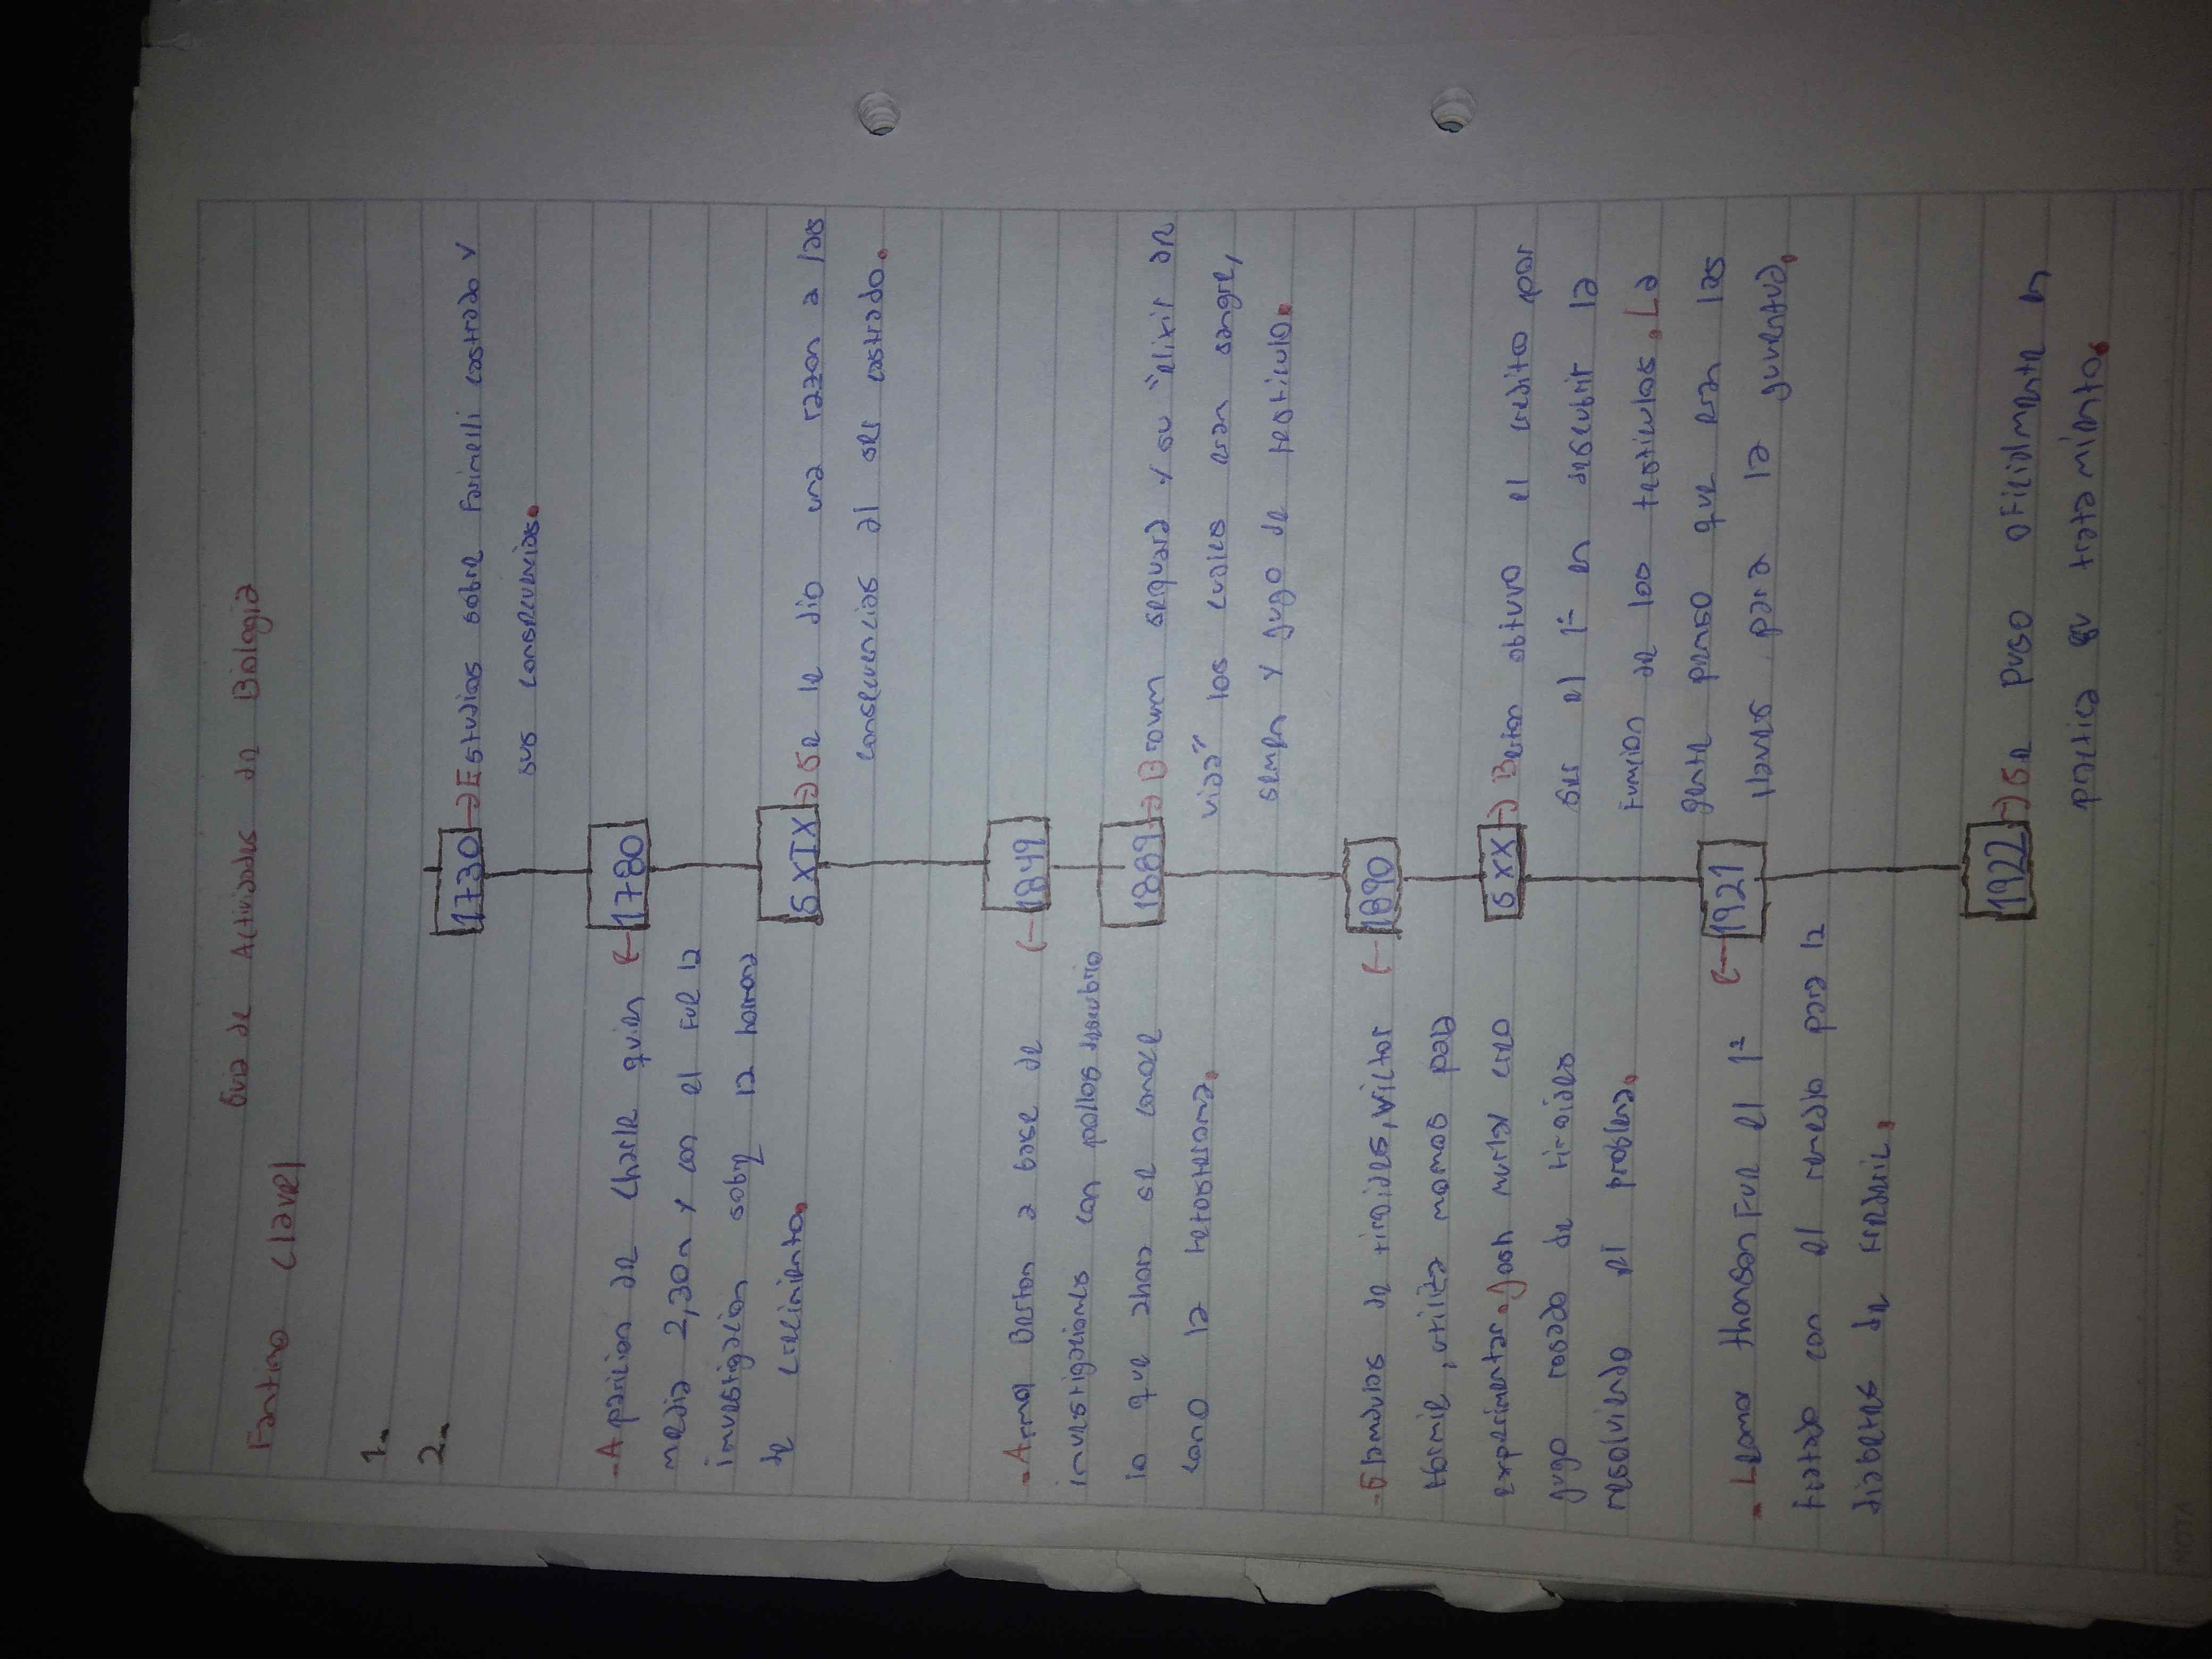 Fantino Clavel
Guia de Actividades de Biologia
1.
2.
1730 → Estudios sobre Farinelli castrado y
sus consecuencias.
- Aparicion de Charle quien ← 1780
media 2,30m y con el fue la
investigacion sobre la hormona
de crecimiento.
S XIX → Se le dio una razon a las
consecuencias al ser castrado.
- Arnol Berton a base de ← 1849
investigaciones con pollos descubrio
lo que ahora se conoce
como la tetosterona.
1889 → Brown sequard y su "elixir de
vida" los cuales eran sangre,
semen y jugo de testiculo.
- Glandulas de tiroides, Victor ← 1890
Hormie, utiliza monos para
experimentar. Josh murley creo
jugo rosado de tiroides
resolviendo el problema.
S XX → Berton obtuvo el credito por
ser el 1° en descubrir la
funcion de los testiculos. La
gente penso que eran las
llaves para la juventud.
- Leonar thomson Fue el 1° ← 1921
tratado con el remedio para la
diabetes de Frederic.
1922 → Se puso oficialmente en
practica su tratamiento.